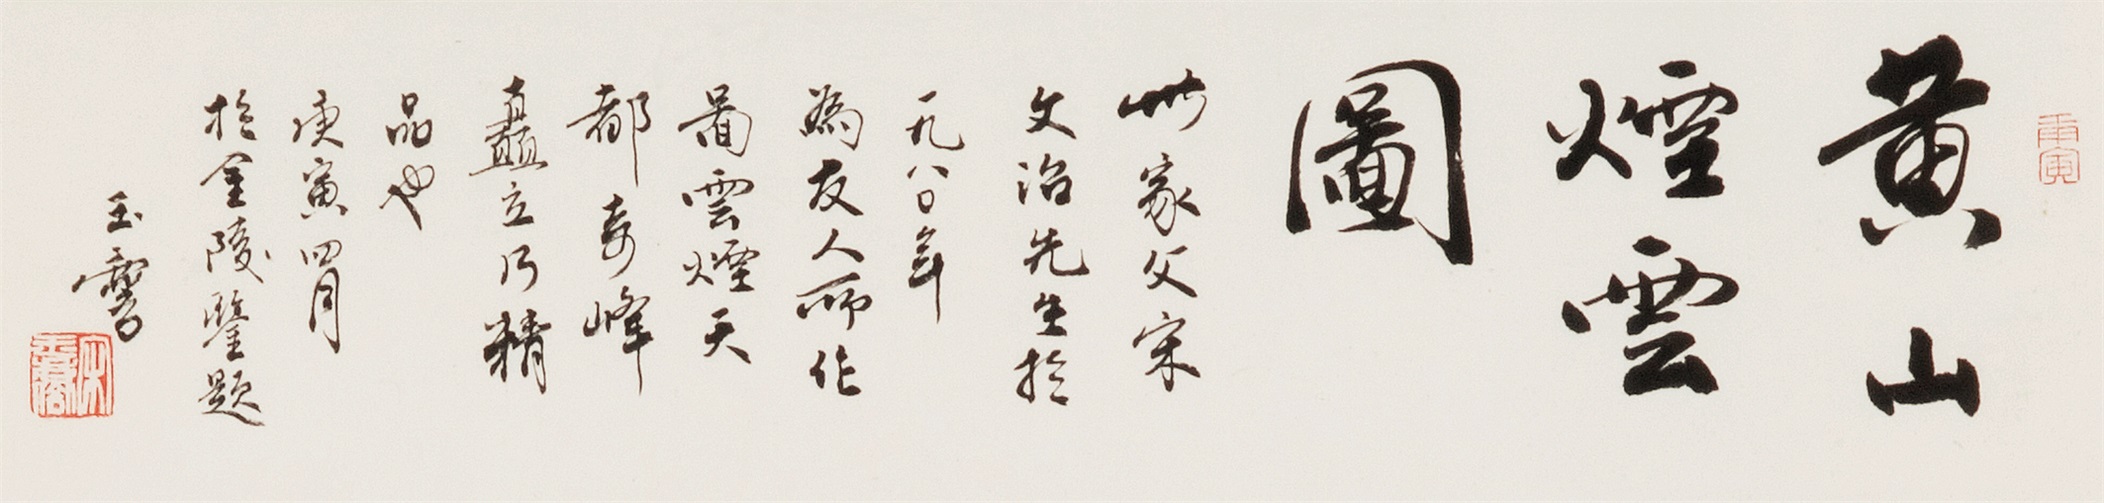 黄山
煙雲
圖
此家父宋
文治先生於
一九八〇年
為友人所作
圖雲煙天
都奇峰
矗立乃精
品也
庚寅四月
於金陵鑒題
玉麐
庚寅
宋玉麐